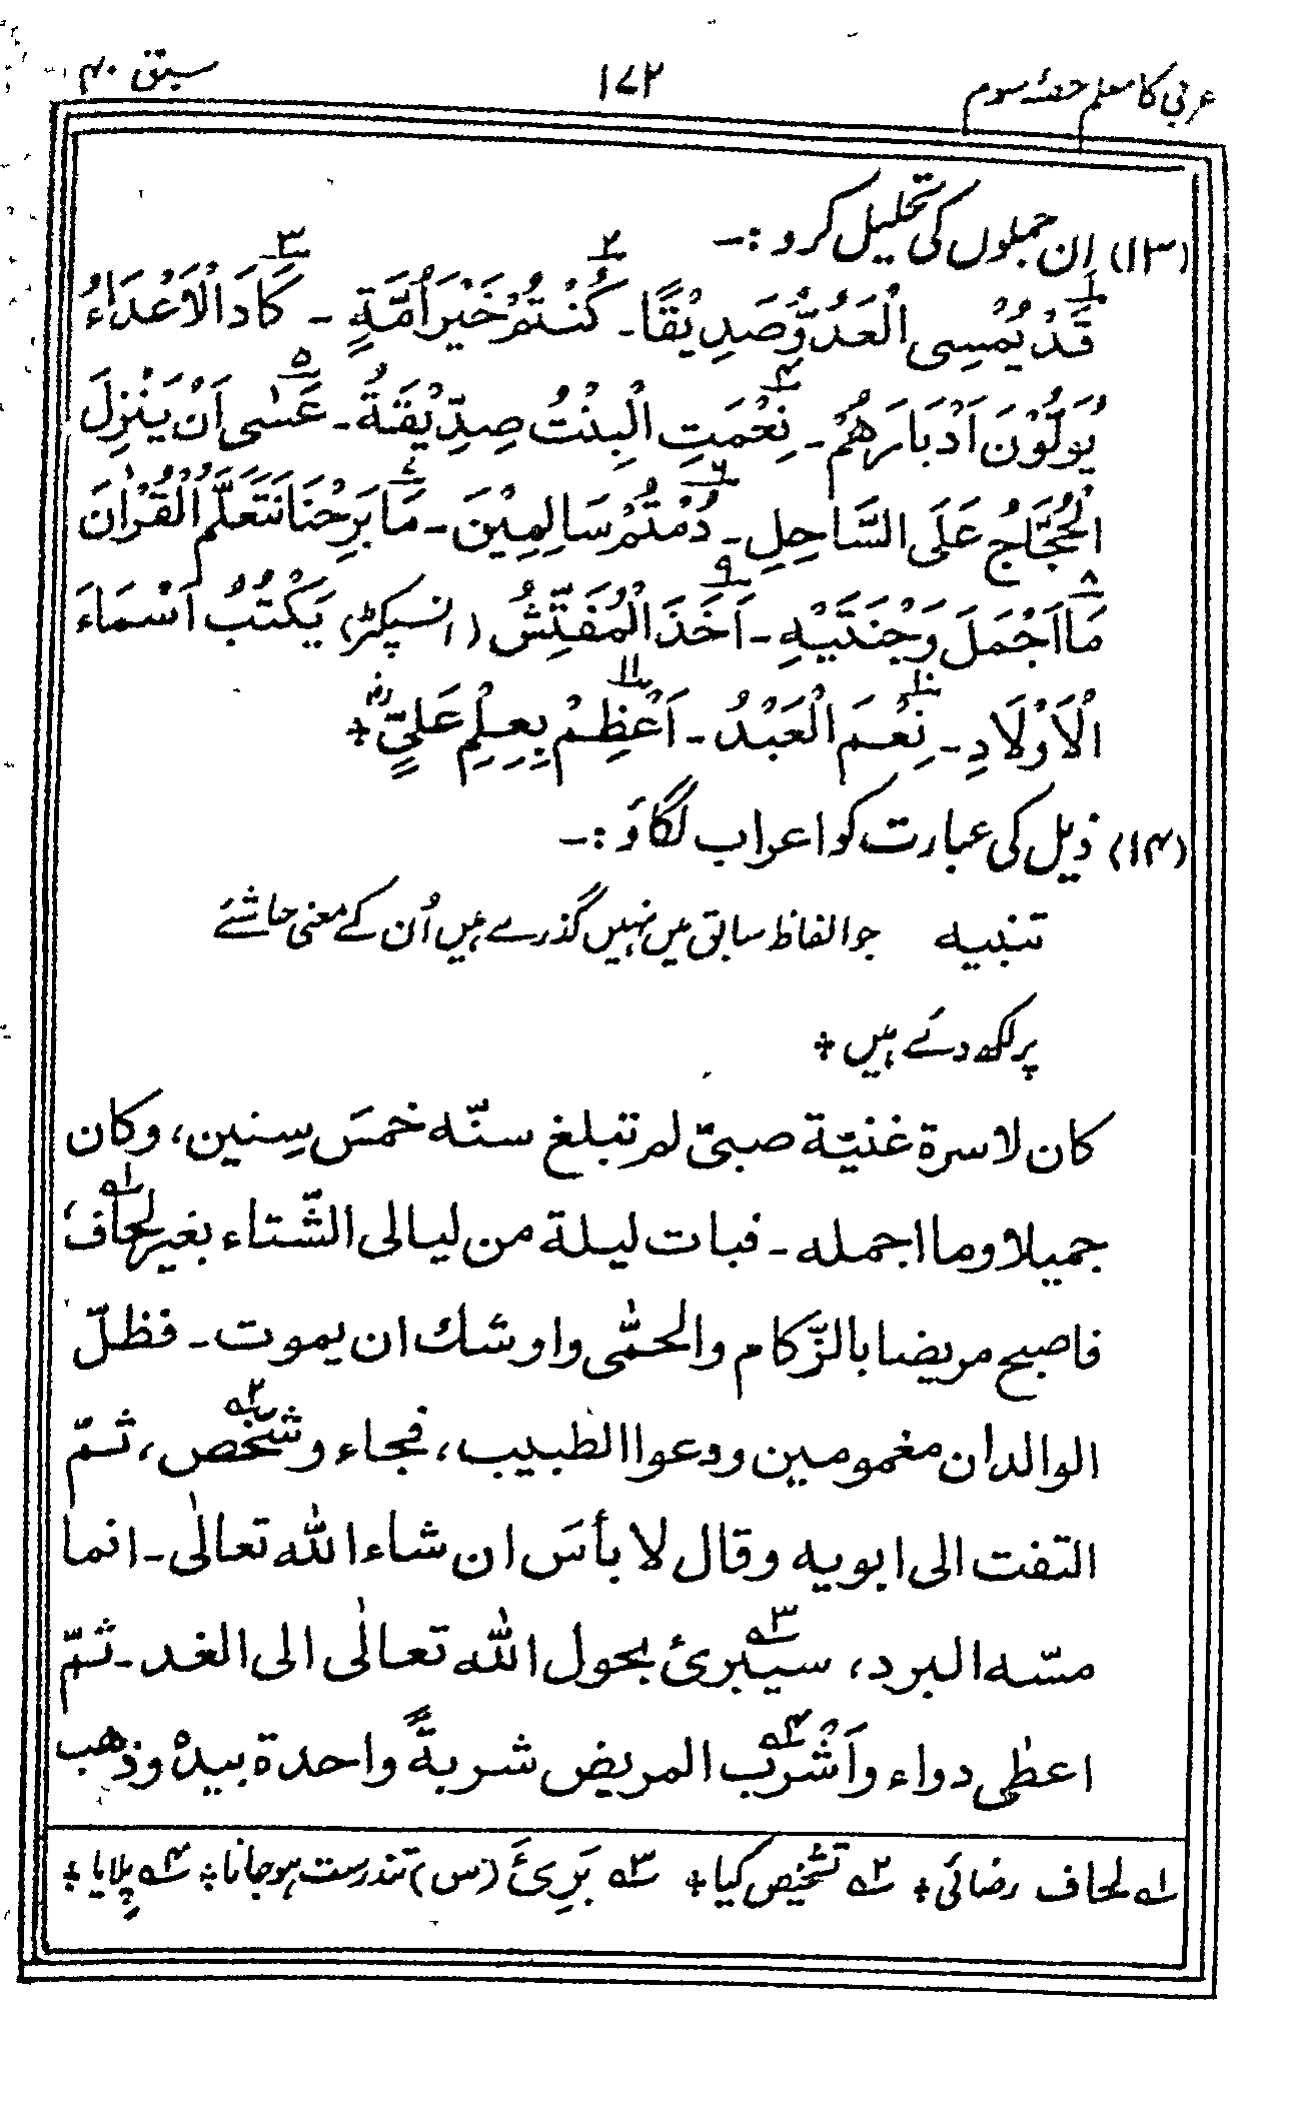 عربی کا معلم حصۂ سوم ۱۷۲ سبق ۴۰
(۱۳) اِن جملوں کی تحلیل کرو :۔
۱ قَدْ يُمْسِى الْعَدُوُّ صَدِيْقًا ۔ ۲ كُنْتُمْ خَيْرَ اُمَّةٍ ۔ ۳ كَادَ الْاَعْدَاءُ
يُوَلُّوْنَ اَدْبَارَهُمْ ۔ ۴ نِعْمَتِ الْبِنْتُ صِدِّيْقَةُ ۔ ۵ عَسٰى اَنْ يَنْزِلَ
الْحُجَّاجُ عَلَى السَّاحِلِ ۔ ۶ دُمْتُمْ سَالِمِيْنَ ۔ ۷ مَا بَرِحْنَا نَتَعَلَّمُ الْقُرْاٰنَ
۸ مَا اَجْمَلَ وَجْنَتَيْهِ ۔ ۹ اَخَذَ الْمُفَتِّشُ (انسپکٹر) يَكْتُبُ اَسْمَاءَ
الْاَوْلَادِ ۔ ۱۰ نِعْمَ الْعَبْدُ ۔ ۱۱ اَعْظِمْ بِعِلْمِ عَلِيٍّ ؓ +
(۱۴) ذیل کی عبارت کو اعراب لگاؤ :۔
تنبیہ جو الفاظ سابق میں نہیں گذرے ہیں اُن کے معنی حاشئے
پر لکھ دئے ہیں +
كان لاسرة غنيّة صبىّ لم تبلغ سنّه خمسَ سِنين، وكان
جميلا وما اجمله ۔ فبات ليلة من ليالى الشّتاء بغير لحاف ۱ه،
فاصبح مريضا بالزّكام والحمّٰى واوشك ان يموت ۔ فظلّ
الوالدان مغمومين ودعوا الطبيب، فجاء وشخّص ۲ه، ثمّ
التفت الى ابويه وقال لا بأسَ ان شاء الله تعالٰى ۔ انما
مسّه البرد، سيبرئ ۳ه بحول الله تعالٰى الى الغد ۔ ثمّ
اعطٰى دواء واَشْرب ۴ه المريض شربةً واحدة بيدهٖ وذهب
۱ه لحاف رضائی + ۲ه تشخیص کیا + ۳ه بَرِئَ (س) تندرست ہو جانا + ۴ه پلایا +